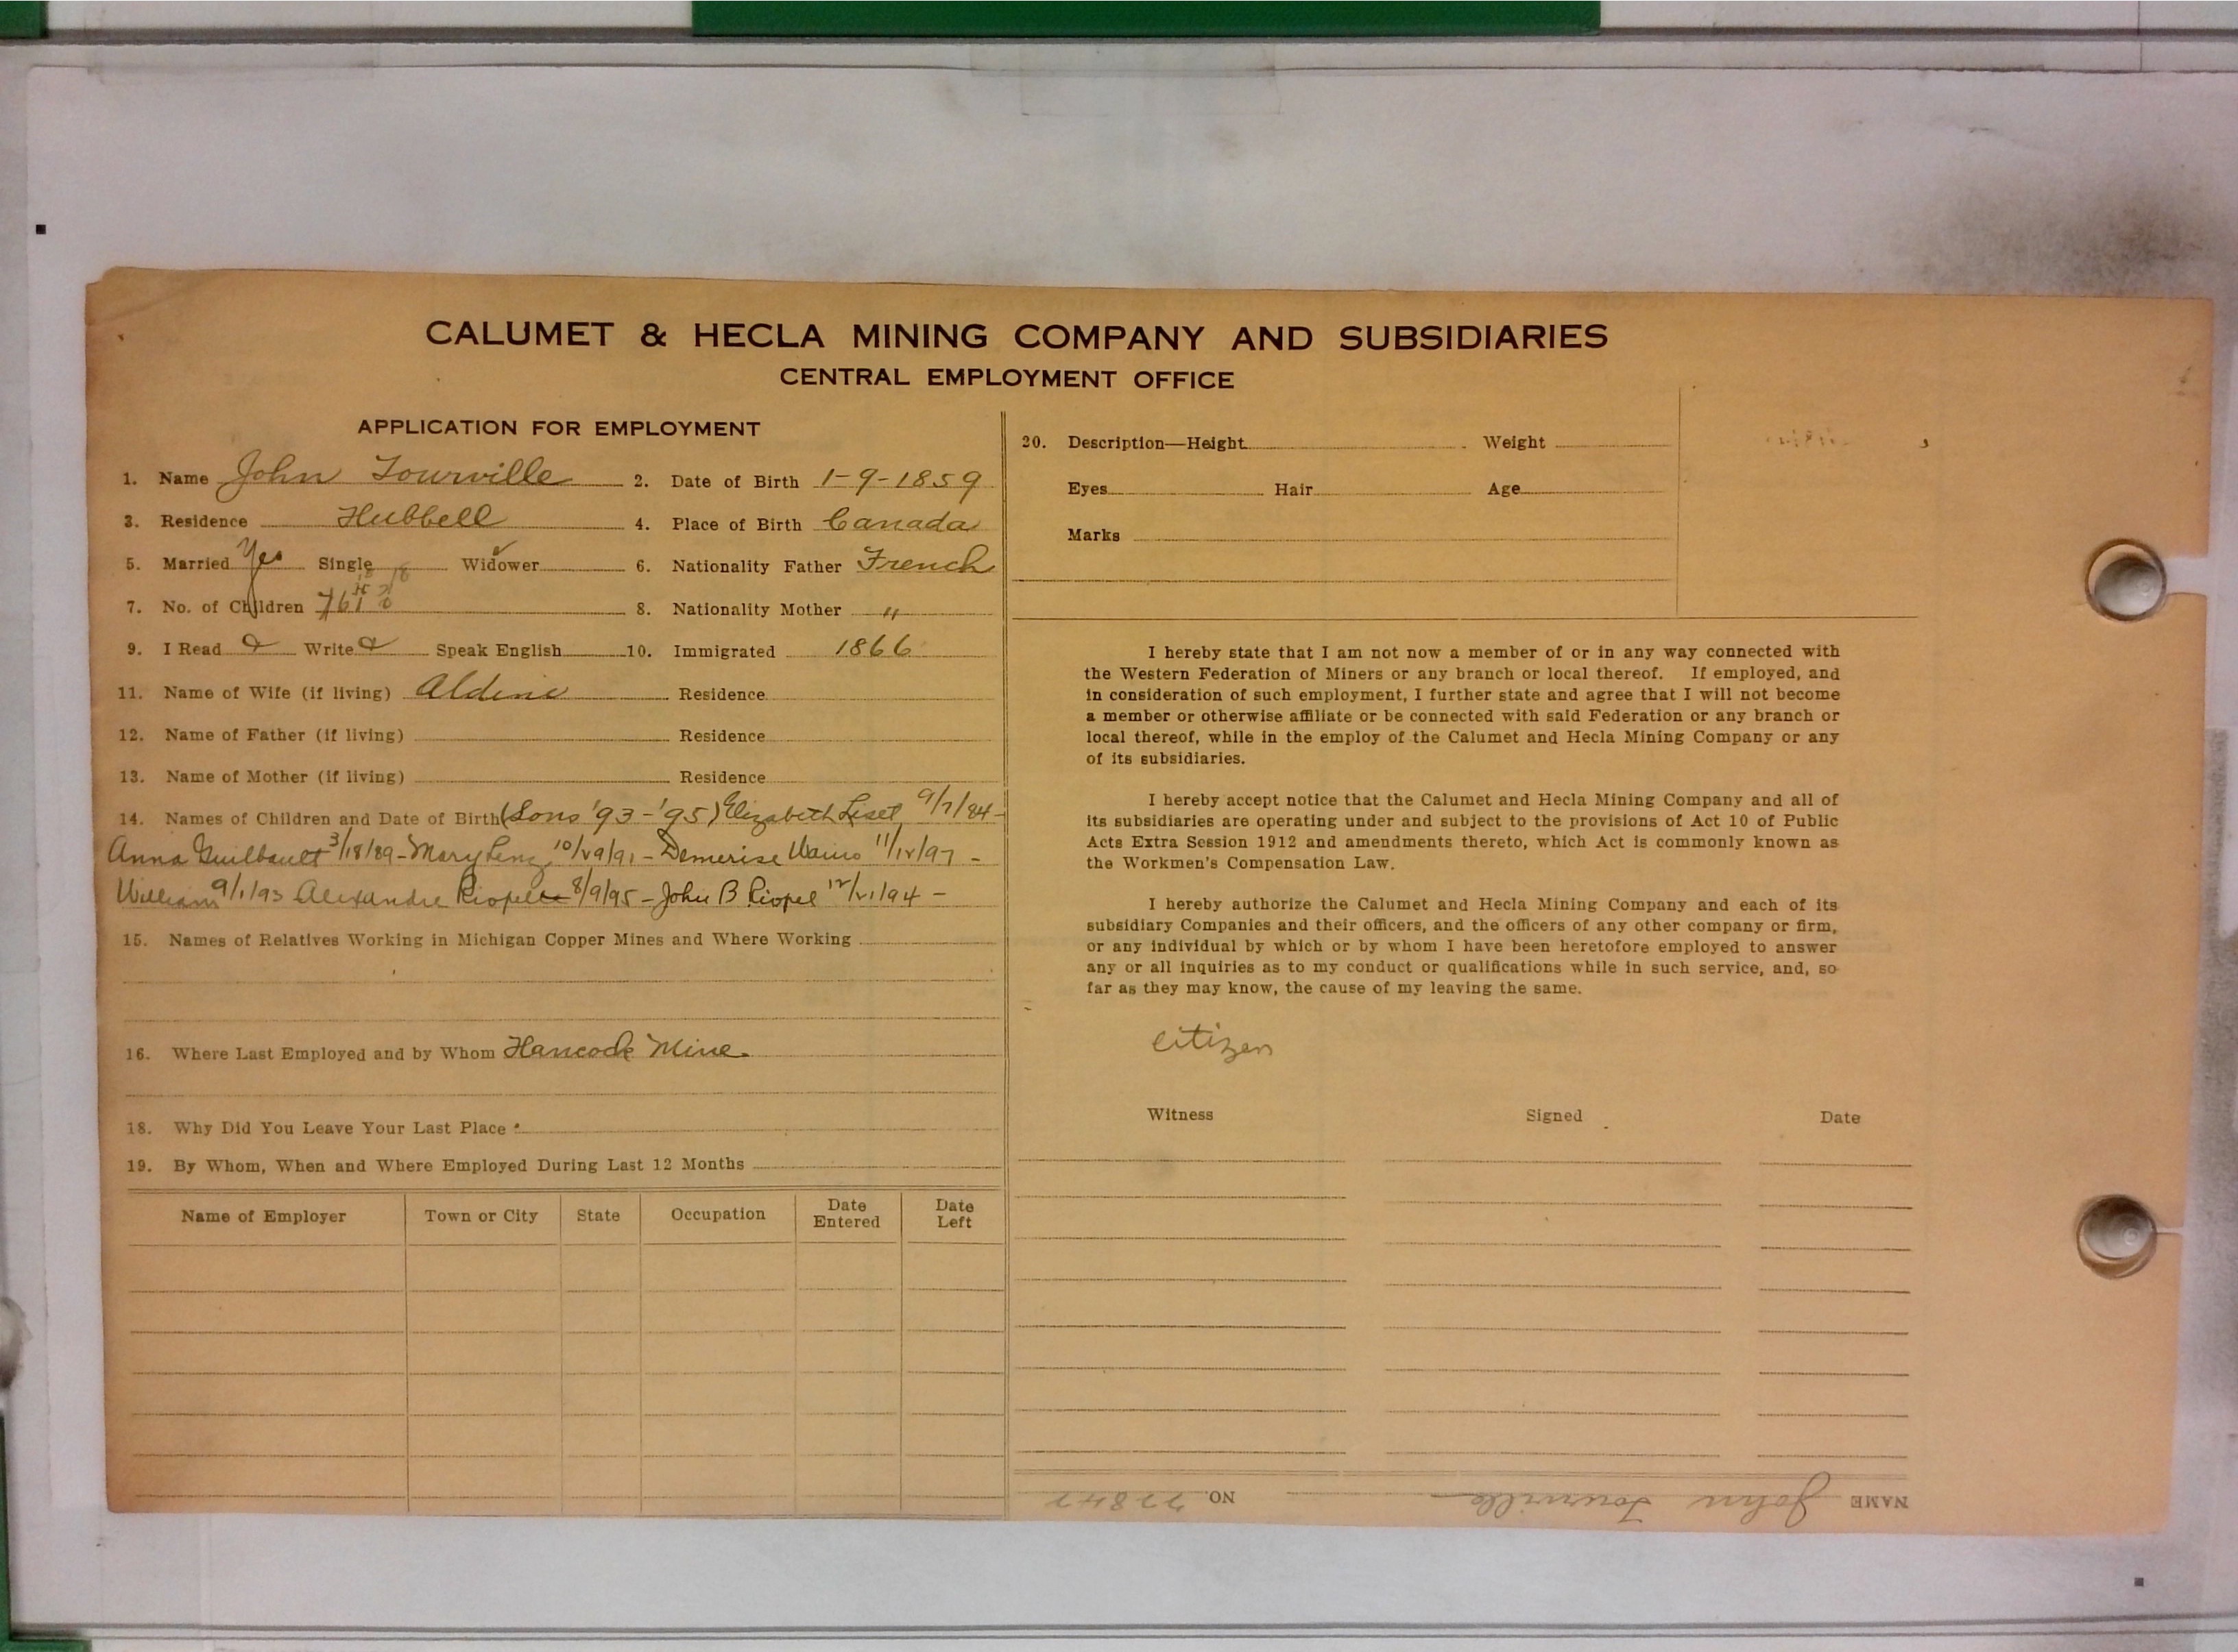 CALUMET & HECLA MINING COMPANY AND SUBSIDIARIES
CENTRAL EMPLOYMENT OFFICE
APPLICATION FOR EMPLOYMENT
1. Name John Tourville 2. Date of Birth 1-9-1859
3. Residence Hubbell 4. Place of Birth Canada
5. Married Yes Single Widower ✓ 6. Nationality Father French
7. No. of Children 8. Nationality Mother "
9. I Read & Write & Speak English 10. Immigrated 1866
11. Name of Wife (if living) Aldine Residence
12. Name of Father (if living) Residence
13. Name of Mother (if living) Residence
14. Names of Children and Date of Birth (Sons '93-'95) Elizabeth 9/7/84-
Anna Guilbault 3/18/89-Mary 10/29/91-Demerise 11/12/97-
William 9/1/93 Alexandre Riopel 8/9/95-John B Riopel 12/21/94-
15. Names of Relatives Working in Michigan Copper Mines and Where Working
16. Where Last Employed and by Whom Hancock Mine.
18. Why Did You Leave Your Last Place
19. By Whom, When and Where Employed During Last 12 Months
Name of Employer Town or City State Occupation Date Entered Date Left
20. Description—Height Weight
Eyes Hair Age
Marks
I hereby state that I am not now a member of or in any way connected with
the Western Federation of Miners or any branch or local thereof. If employed, and
in consideration of such employment, I further state and agree that I will not become
a member or otherwise affiliate or be connected with said Federation or any branch or
local thereof, while in the employ of the Calumet and Hecla Mining Company or any
of its subsidiaries.
I hereby accept notice that the Calumet and Hecla Mining Company and all of
its subsidiaries are operating under and subject to the provisions of Act 10 of Public
Acts Extra Session 1912 and amendments thereto, which Act is commonly known as
the Workmen's Compensation Law.
I hereby authorize the Calumet and Hecla Mining Company and each of its
subsidiary Companies and their officers, and the officers of any other company or firm,
or any individual by which or by whom I have been heretofore employed to answer
any or all inquiries as to my conduct or qualifications while in such service, and, so
far as they may know, the cause of my leaving the same.
citizen
Witness Signed Date
NAME John Tourville NO. 22847